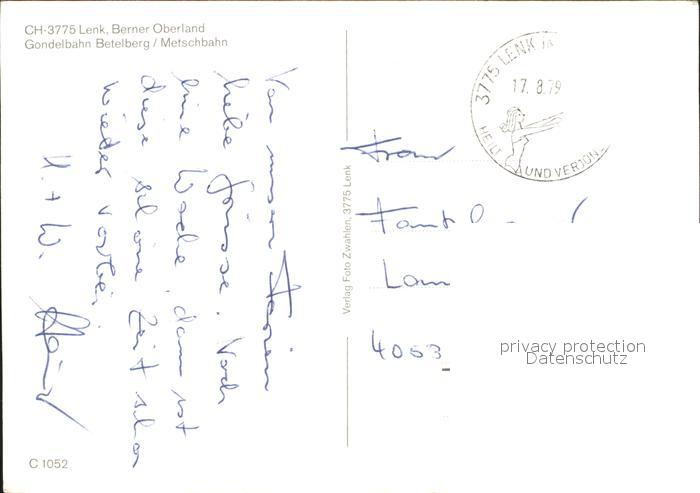 CH-3775 Lenk, Berner Oberland
Gondelbahn Betelberg / Metschbahn
Von unseren Ferien
liebe Grüsse. Noch
eine Woche, dann ist
diese schöne Zeit schon
wieder vorbei.
H. + W.
C 1052
Verlag Foto Zwahlen, 3775 Lenk
3775 LENK
17.8.79
HEILT UND VERJÜN
Frau
4053
privacy protection
Datenschutz